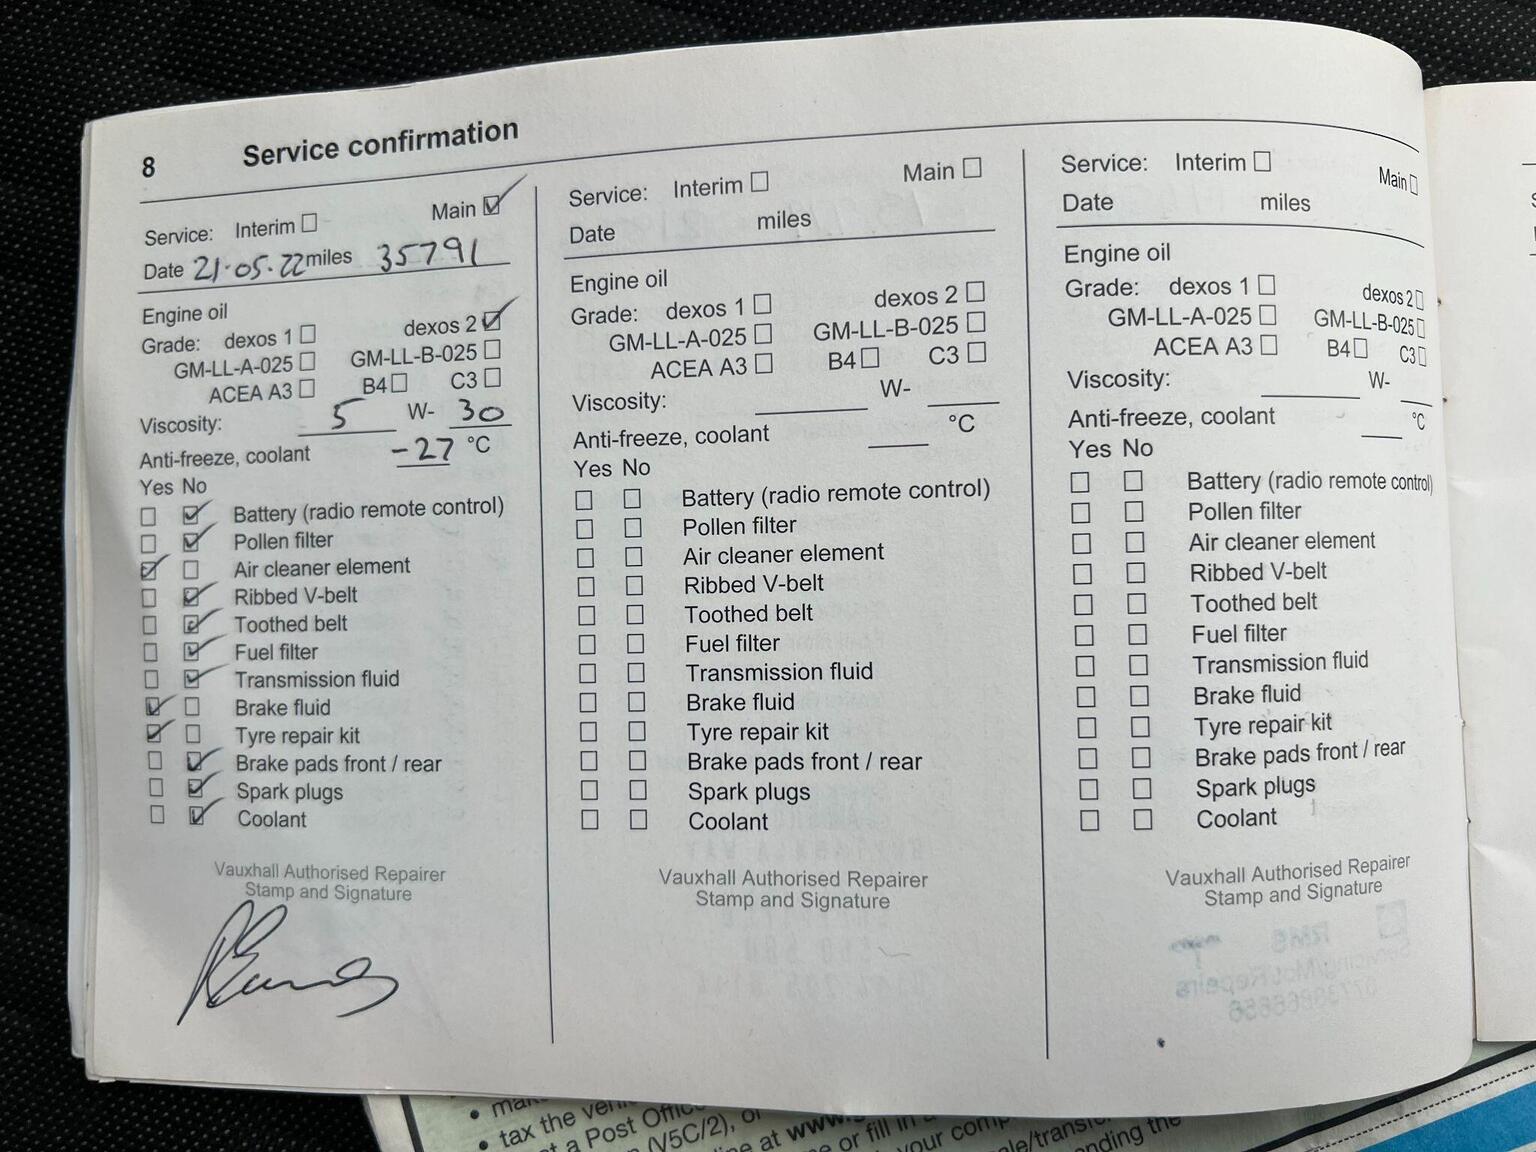 8 Service confirmation
Service: Interim Main
Date 21.05.22 miles 35791
Engine oil
Grade: dexos 1 dexos 2
GM-LL-A-025 GM-LL-B-025
ACEA A3 B4 C3
Viscosity: 5 W- 30
Anti-freeze, coolant -27 °C
Yes No
Battery (radio remote control)
Pollen filter
Air cleaner element
Ribbed V-belt
Toothed belt
Fuel filter
Transmission fluid
Brake fluid
Tyre repair kit
Brake pads front / rear
Spark plugs
Coolant
Vauxhall Authorised Repairer
Stamp and Signature
Service: Interim Main
Date miles
Engine oil
Grade: dexos 1 dexos 2
GM-LL-A-025 GM-LL-B-025
ACEA A3 B4 C3
Viscosity: W-
Anti-freeze, coolant °C
Yes No
Battery (radio remote control)
Pollen filter
Air cleaner element
Ribbed V-belt
Toothed belt
Fuel filter
Transmission fluid
Brake fluid
Tyre repair kit
Brake pads front / rear
Spark plugs
Coolant
Vauxhall Authorised Repairer
Stamp and Signature
Service: Interim Main
Date miles
Engine oil
Grade: dexos 1 dexos 2
GM-LL-A-025 GM-LL-B-025
ACEA A3 B4 C3
Viscosity: W-
Anti-freeze, coolant °C
Yes No
Battery (radio remote control)
Pollen filter
Air cleaner element
Ribbed V-belt
Toothed belt
Fuel filter
Transmission fluid
Brake fluid
Tyre repair kit
Brake pads front / rear
Spark plugs
Coolant
Vauxhall Authorised Repairer
Stamp and Signature
• tax the
a Post Office
(V5C/2), or
at www.
or fill in
your